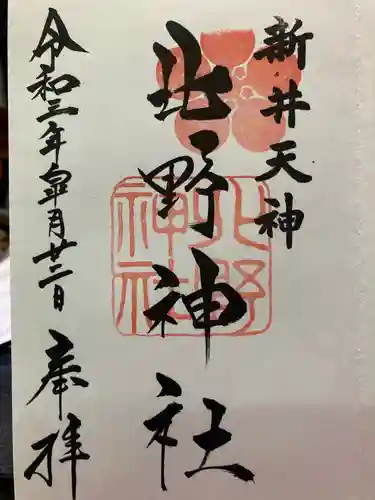 新井天神
北野神社
北野神社
令和三年皐月廿二日
奉拝